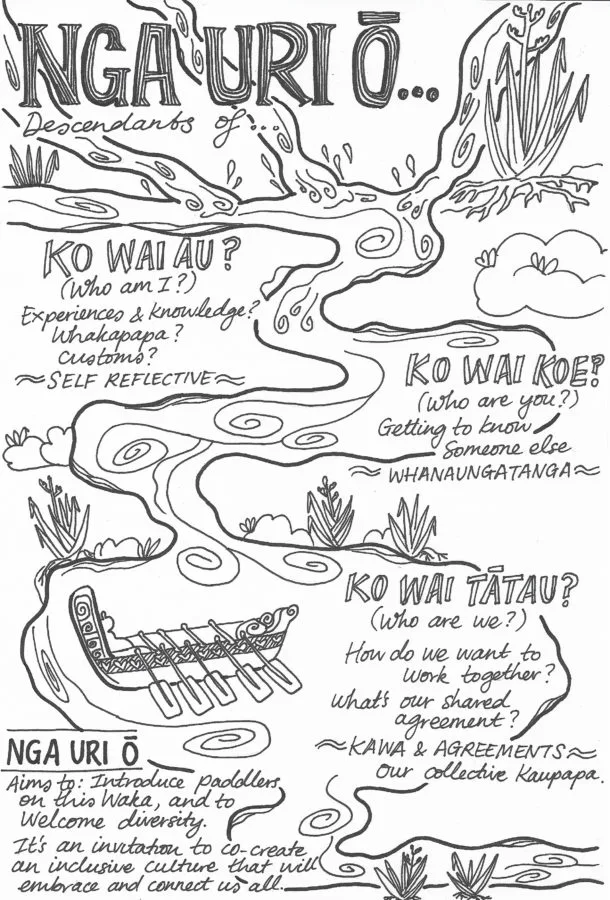 NGA URI Ō...
Descendants of...
KO WAI AU?
(Who am I?)
Experiences & knowledge?
Whakapapa?
customs?
~SELF REFLECTIVE~
KO WAI KOE?
(Who are you?)
Getting to know
Someone else
~WHANAUNGATANGA~
KO WAI TĀTAU?
(Who are we?)
How do we want to
work together?
What's our shared
agreement?
~KAWA & AGREEMENTS~
Our collective Kaupapa.
NGA URI Ō
Aims to: Introduce paddlers
on this Waka, and to
Welcome diversity.
It's an invitation to co-create
an inclusive culture that will
embrace and connect us all.